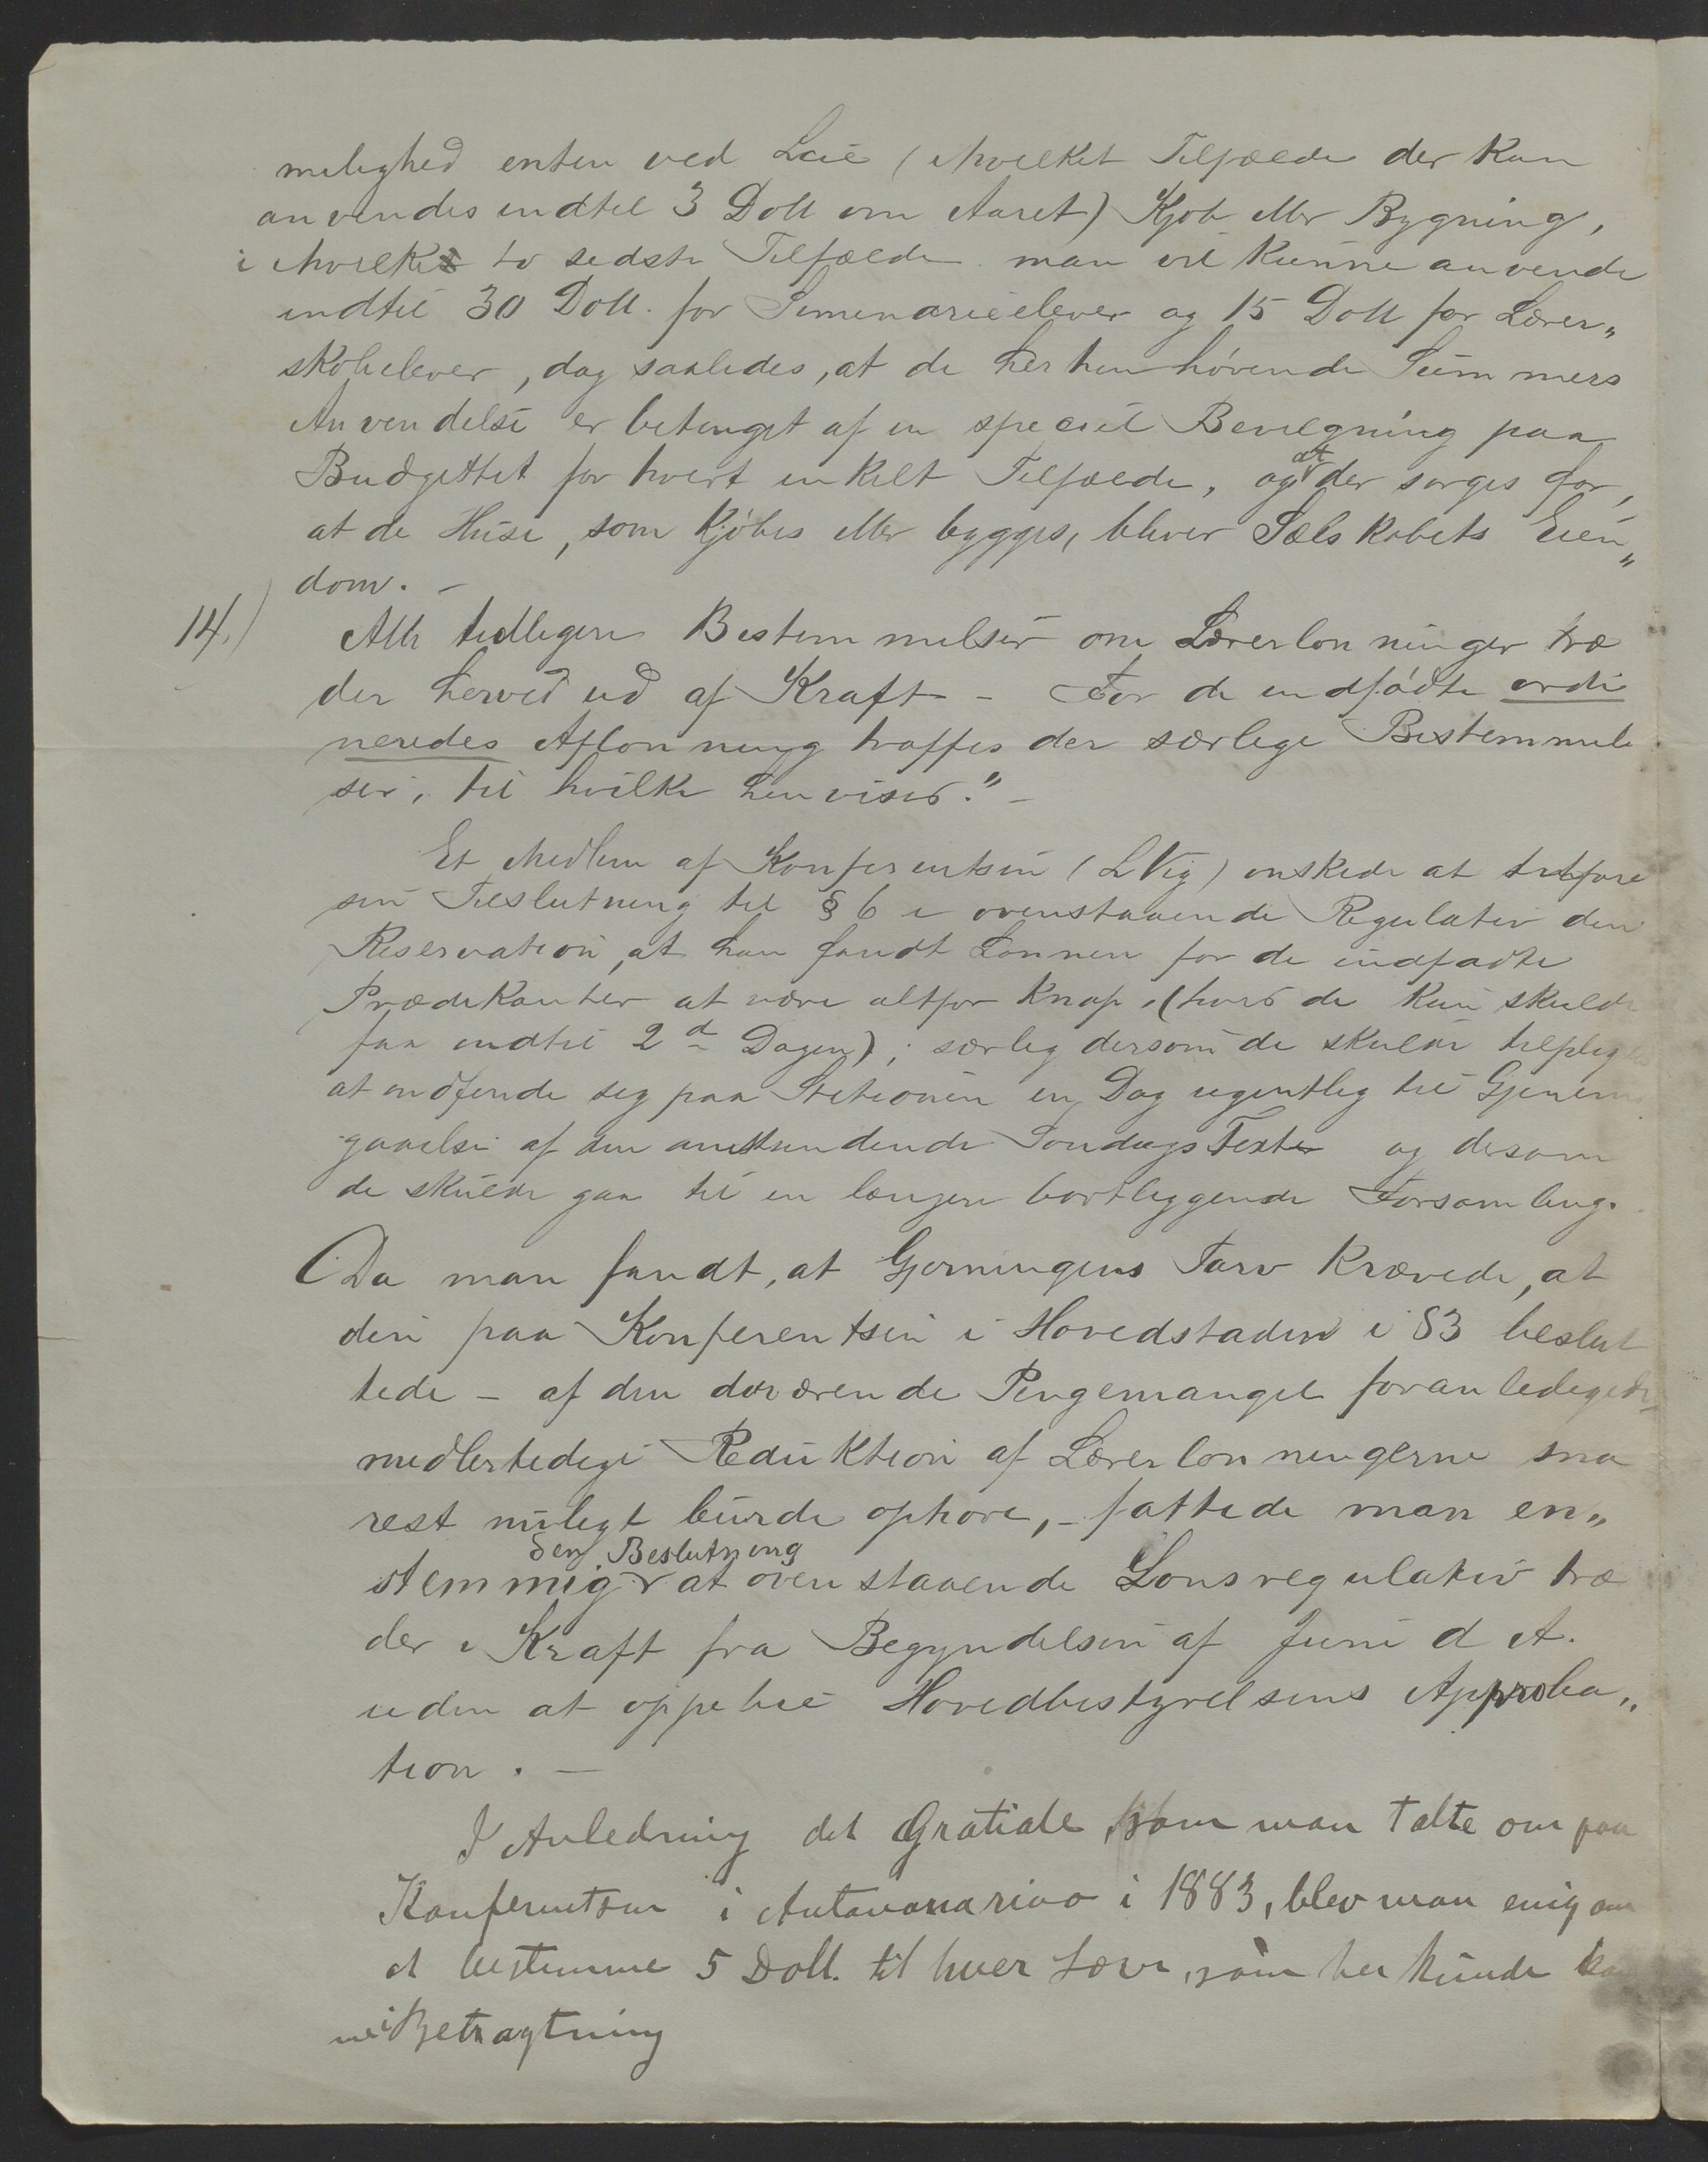 melighed enten ved Leie (i hvilket Tilfælde der kan
anvendes indtil 3 Doll om Aaret) Kjøb eller Bygning,
i hvilke to sidste Tilfælde man vil kunne anvende
indtil 30 Doll. for Seminarieelever og 15 Doll for Lærer„
skoleelever, dog saaledes, at de herhen hørende Summers
Anvendelse er betinget af en speciel Bevilgning paa
Budgettet for hvert enkelt Tilfælde, og at der sørges for,
at de Huse, som kjøbes eller bygges, bliver Selskabets Eien„
dom. –
14.) Alle tidligere Bestemmelser om Lærerlønninger træ
der herved ud af Kraft – For de indfødte ordi
neredes Aflønning træffes der særlige Bestemmel
ser, til hvilke henvises." –
Et Medlem af Konferentsen (L Vig) ønskede at tilføre
sin Tilslutning til § 6 i ovenstaaende Regulativ den
Reservation, at han fandt Lønnen for de indfødte
Prædikanter at være altfor knap, (hvis de kun skulde
faa indtil 2 d Dagen); særlig dersom de skulde
at indfinde sig paa Stationen en Dag ugentlig til Gjennem
gaaelse af den anstundende Søndags Text og dersom
de skulde gaa til en længere bortliggende Forsamling.
Da man fandt, at Gjerningens Tarv krævede, at
den paa Konferentsen i Hovedstaden i 83 beslut
tede – af den daværende Pengemangel foranledigede,
midlertidige Reduktion af Lærerlønningerne sna
rest muligt burde ophøre, – fattede man en„
stemmig den Beslutning at ovenstaaende Lønsregulativ træ
der i Kraft fra Begyndelsen af Juni d A.
uden at oppebie Hovedbestyrelsens Approba„
tion. –
I Anledning det Gratiale, som man talte om paa
Konferentsen i Antananarivo i 1883, blev man enig om
at bestemme 5 Doll. til hver Lærer, som her kunde kom
me i Betragtning